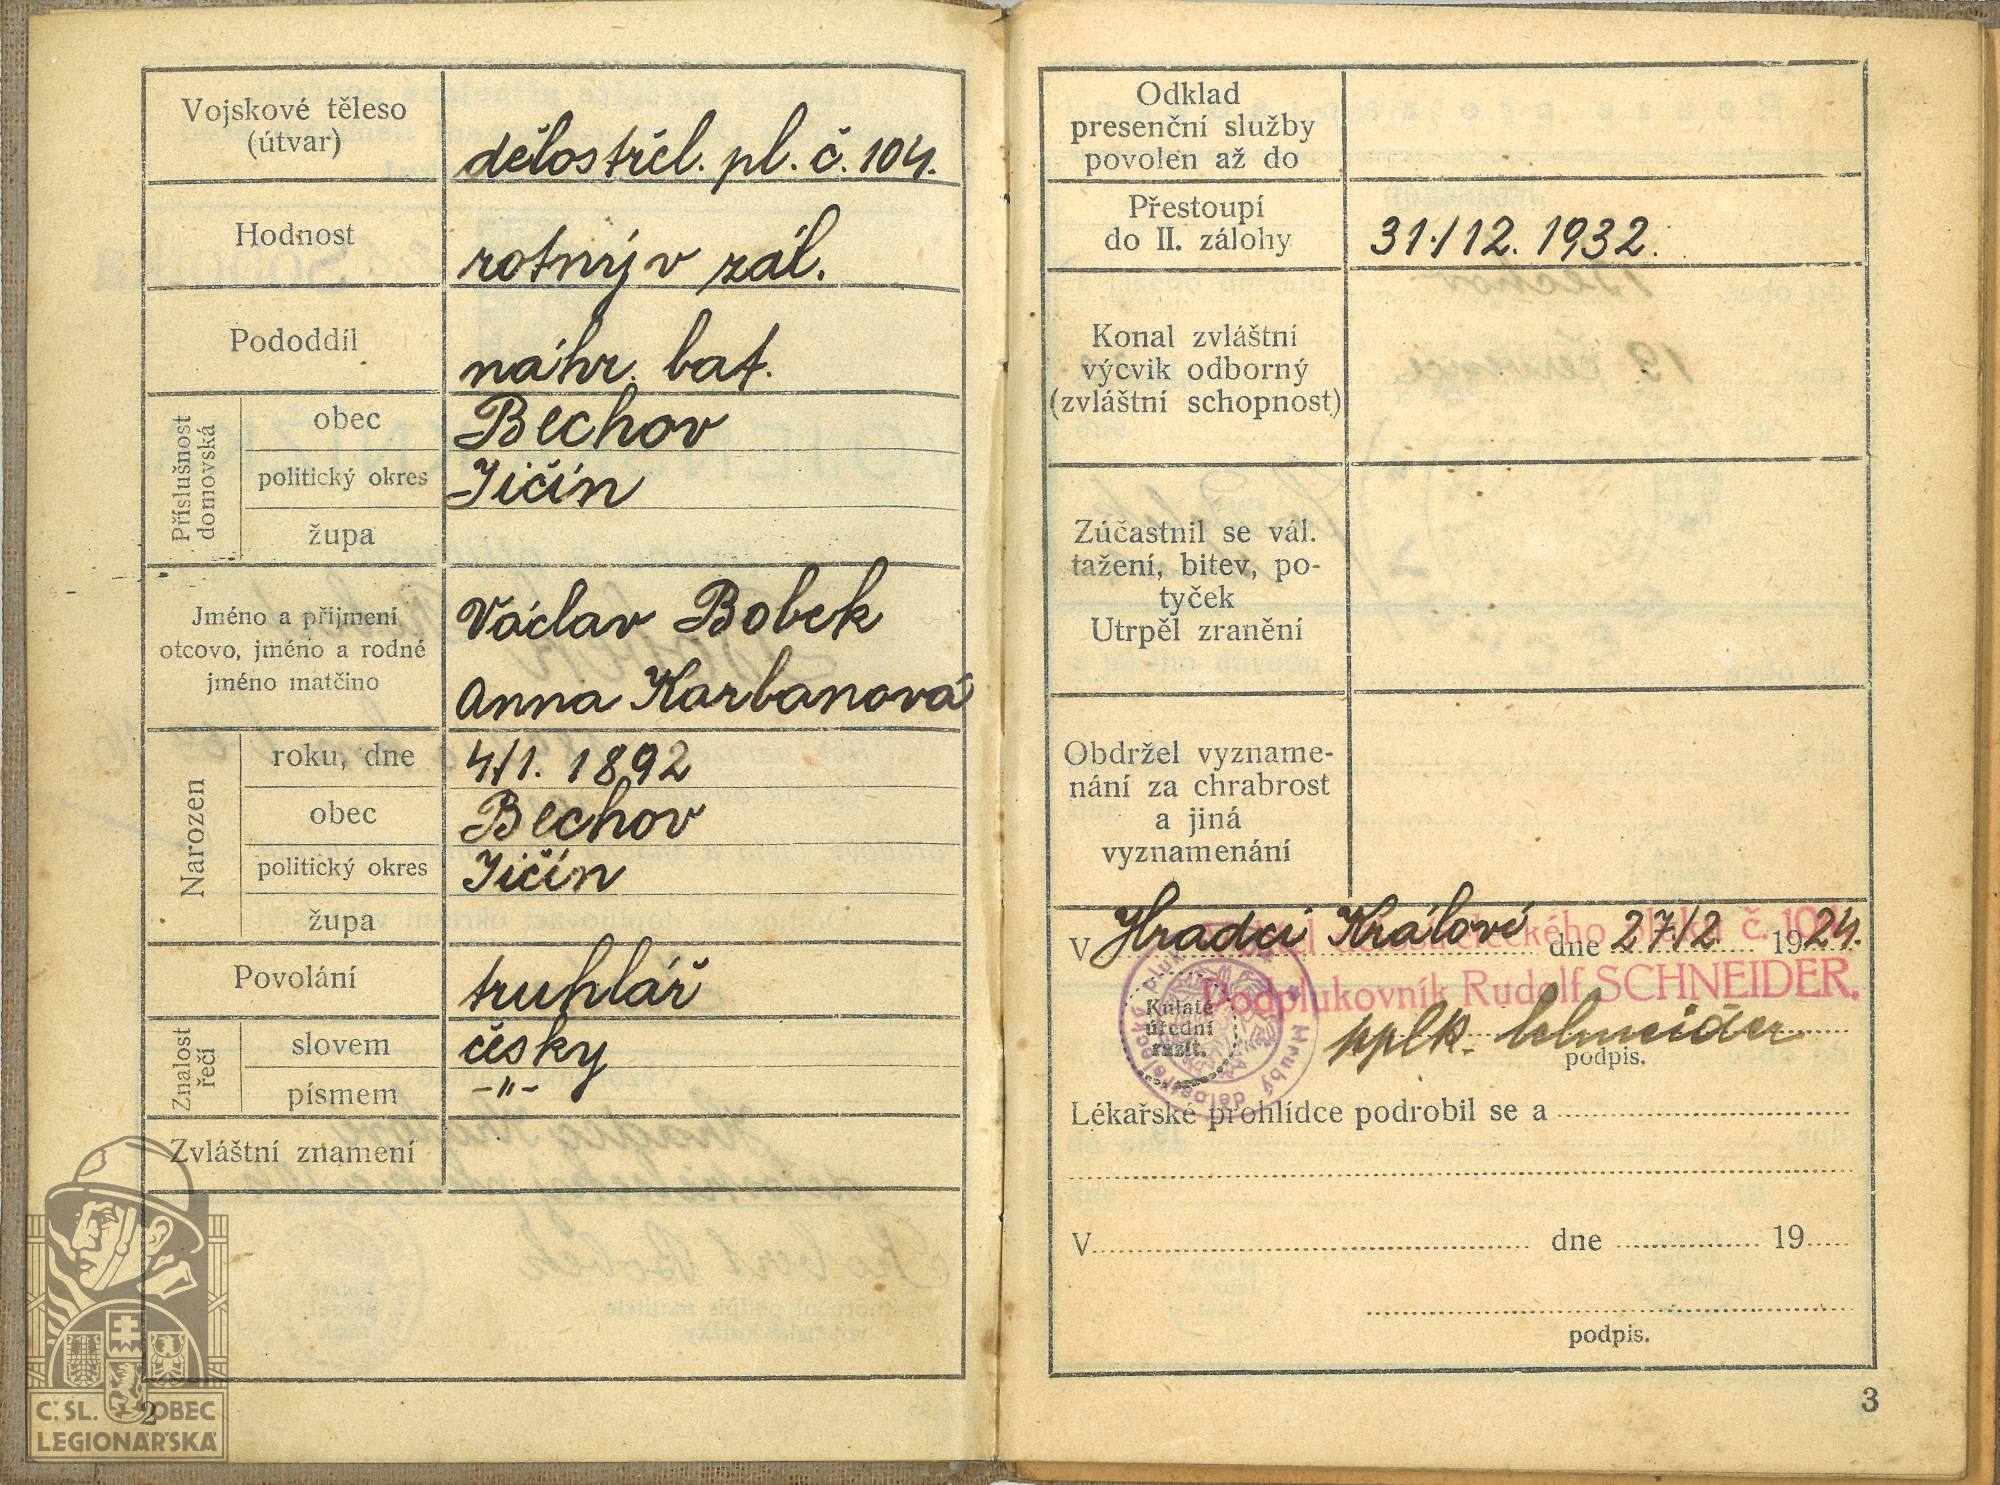 Vojskové těleso
(útvar)
dělostřel. pl. č. 104.
Hodnost
rotmý v zál.
Pododdíl
náhr. bat.
Příslušnost
domovská
obec
Bechov
politický okres
Jičín
župa
Jméno a příjmení
otcovo, jméno a rodné
jméno matčino
Václav Bobek
Anna Karbanová
Narozen
roku, dne
4/1. 1892
obec
Bechov
politický okres
Jičín
župa
Povolání
truhlář
Znalost
řečí
slovem
česky
písmem
-"-
Zvláštní znamení
2
Č. SL. OBEC
LEGIONÁŘSKÁ
Odklad
presenční služby
povolen až do
Přestoupí
do II. zálohy
31./12. 1932.
Konal zvláštní
výcvik odborný
(zvláštní schopnost)
Zúčastnil se vál.
tažení, bitev, po-
tyček
Utrpěl zranění
Obdržel vyzname-
nání za chrabrost
a jiná
vyznamenání
V Hradci Králové dne 27/2 1924.
pluku č. 104
Podplukovník Rudolf SCHNEIDER.
Kulaté
úřední
razít.
Hrubý dělostřelecký pluk
pplk. Schneider
podpis.
Lékařské prohlídce podrobil se a
V dne 19
podpis.
3